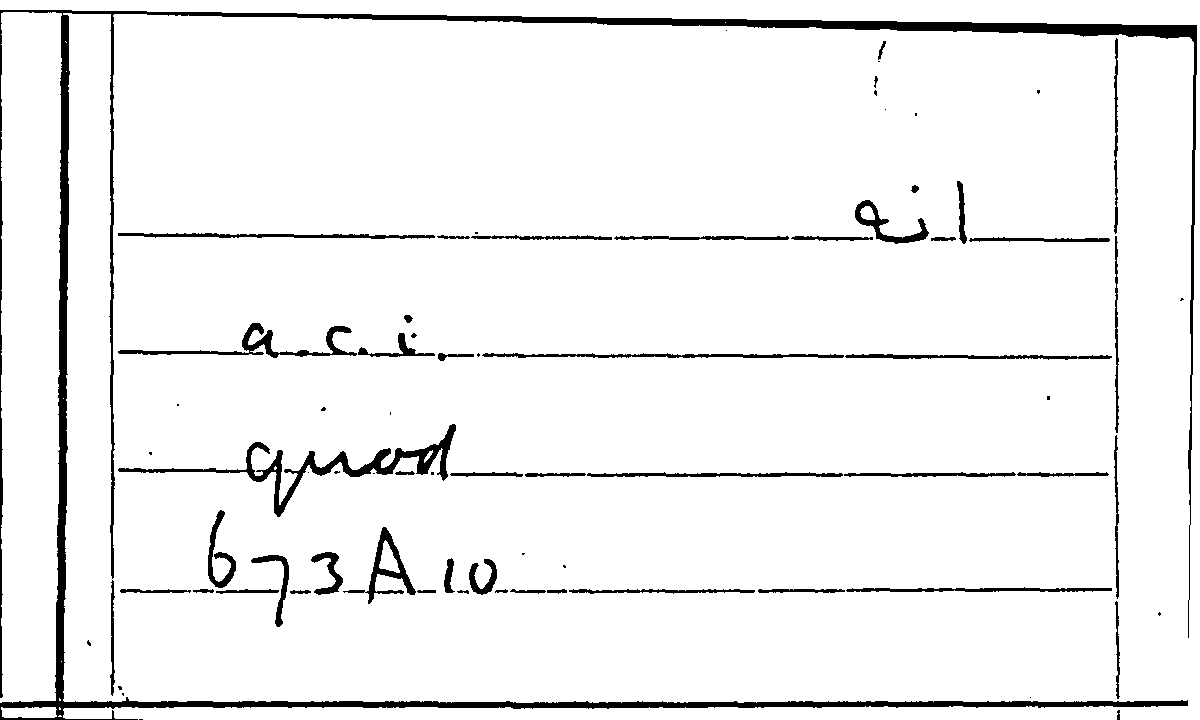 a.c.i.
quod
673A10